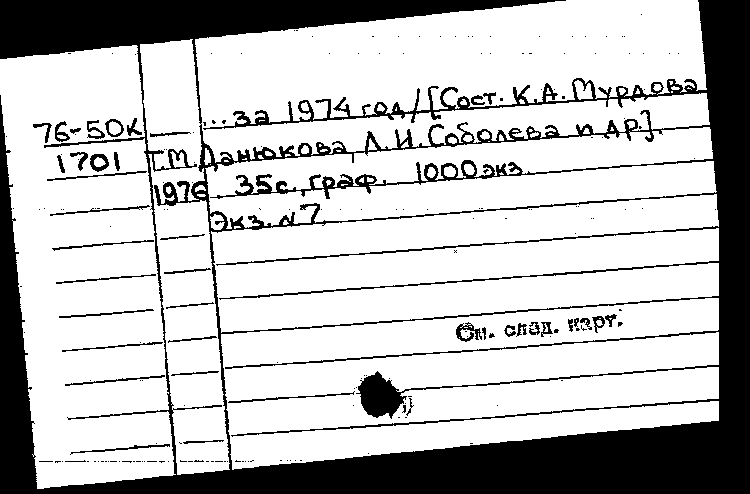 ... за 1974 год/[Сост. К.А. Мурдова
76-50К
Т.М. Данюкова, Л.И. Соболева и др.].
1701
1976. 35с., граф. 1000экз.
Экз. N7
См. след. карт.